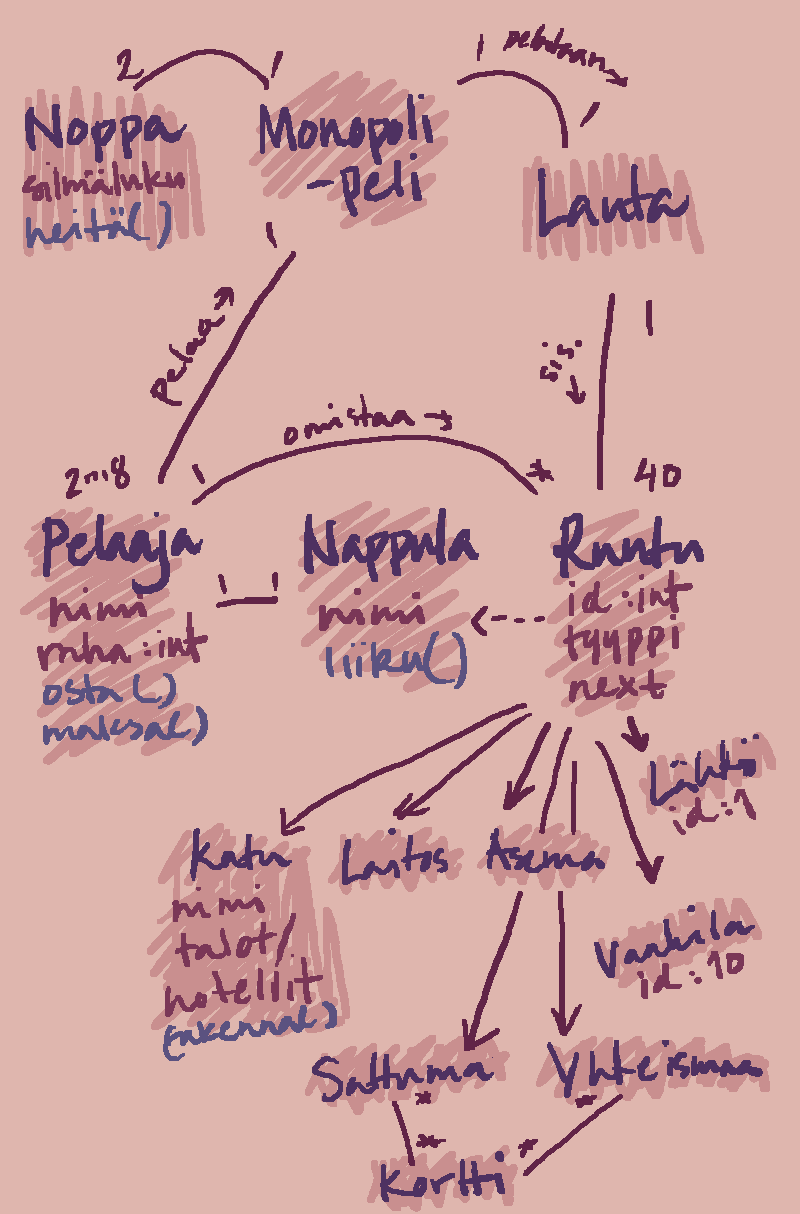 2
1
1 pelataan →
1
Noppa
silmäluku
heitä()
Monopoli
-peli
Lauta
1
pelaa →
1
sis.
omistaa →
2...8
1
*
40
Pelaaja
nimi
raha:int
osta()
maksa()
1
1
Nappula
nimi
liiku()
Ruutu
id:int
tyyppi
next
Lähtö
id:1
Katu
nimi
talot/
hotellit
rakenna()
Laitos
Asema
Vankila
id:10
Sattuma
Yhteismaa
*
*
*
*
Kortti